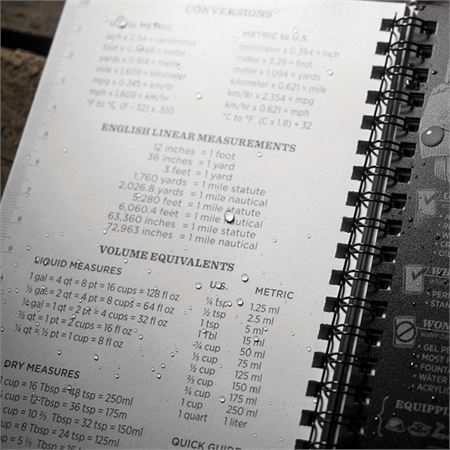 CONVERSIONS
to METRIC
inch x 2.54 = centimeter
foot x = meter
yards x 0.914 = meter
mile x 1.609 = kilometer
mpg x 0.245 = km/lt
mph x 1.609 = km/hr
°F to °C (F - 32) x .555
METRIC to U.S.
centimeter x 0.394 = inch
meter x 3.28 = foot
meter x 1.094 = yards
kilometer x 0.621 = mile
km/lt x 2.354 = mpg
km/hr x 0.621 = mph
°C to °F (C x 1.8) + 32
ENGLISH LINEAR MEASUREMENTS
12 inches = 1 foot
36 inches = 1 yard
3 feet = 1 yard
1,760 yards = 1 mile statute
2,026.8 yards = 1 mile nautical
5,280 feet = 1 mile statute
6,060.4 feet = 1 mile nautical
63,360 inches = 1 mile statute
72,963 inches = 1 mile nautical
VOLUME EQUIVALENTS
LIQUID MEASURES
1 gal = 4 qt = 8 pt = 16 cups = 128 fl oz
½ gal = 2 qt = 4 pt = 8 cups = 64 fl oz
¼ gal = 1 qt = 2 pt = 4 cups = 32 fl oz
½ qt = 1 pt = 2 cups = 16 fl oz
¼ qt = ½ pt = 1 cup = 8 fl oz
U.S. METRIC
¼ tsp 1.25 ml
½ tsp 2.5 ml
1 tsp 5 ml
1 tbl 15 ml
¼ cup 50 ml
⅓ cup 75 ml
½ cup 125 ml
⅔ cup 150 ml
¾ cup 175 ml
1 cup 250 ml
1 quart 1 liter
DRY MEASURES
1 cup = 16 Tbsp = 48 tsp = 250ml
cup = 12 Tbsp = 36 tsp = 175ml
cup = 10 ⅔ Tbsp = 32 tsp = 150ml
cup = 8 Tbsp = 24 tsp = 125ml
cup = 5 ⅓ Tbsp = 16 tsp
QUICK GUIDE
WON
EQUIPPI